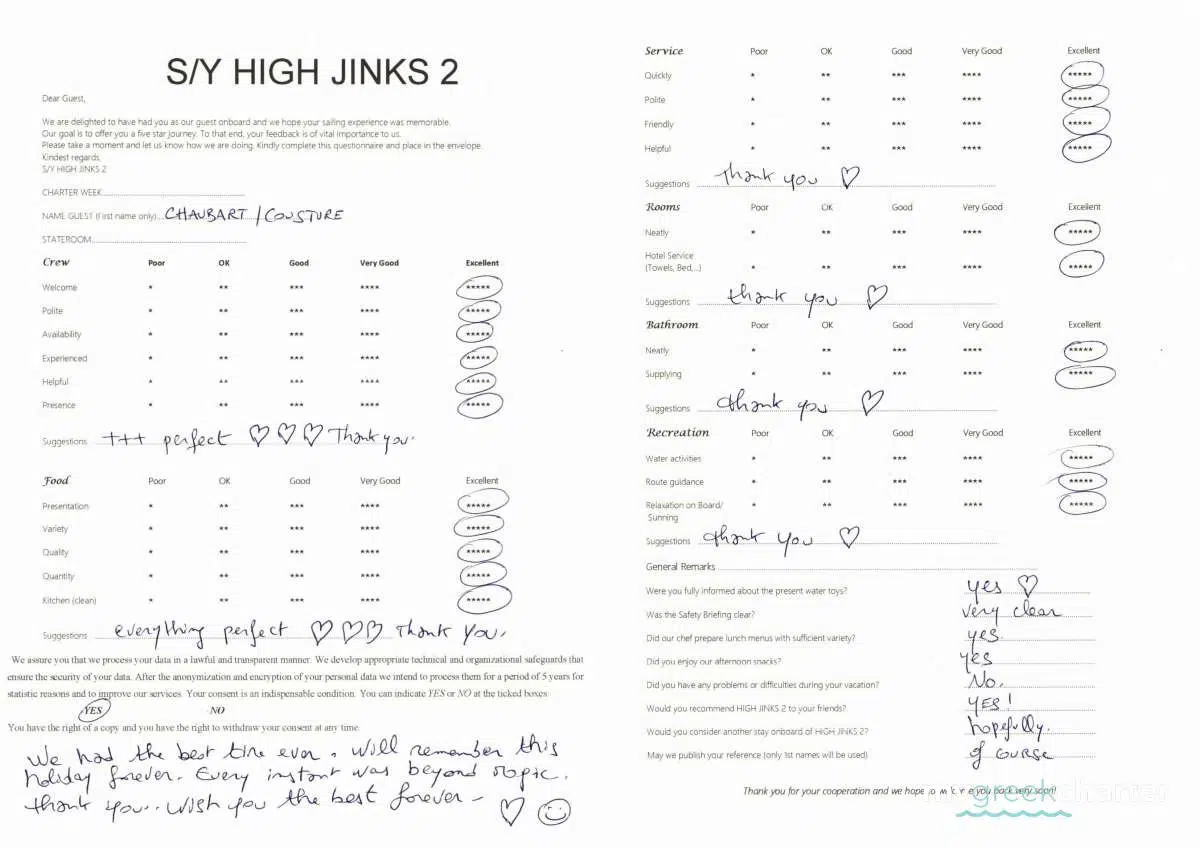 S/Y HIGH JINKS 2
Dear Guest,
We are delighted to have had you as our guest onboard and we hope your sailing experience was memorable.
Our goal is to offer you a five star journey. To that end, your feedback is of vital importance to us.
Please take a moment and let us know how we are doing. Kindly complete this questionnaire and place in the envelope.
Kindest regards,
S/Y HIGH JINKS 2
CHARTER WEEK
NAME GUEST (First name only) CHAUBART / COUSTURE
STATEROOM
Crew Poor OK Good Very Good Excellent
Welcome * ** *** **** *****
Polite * ** *** **** *****
Availability * ** *** **** *****
Experienced * ** *** **** *****
Helpful * ** *** **** *****
Presence * ** *** **** *****
Suggestions +++ perfect ♡ ♡ ♡ Thank you.
Food Poor OK Good Very Good Excellent
Presentation * ** *** **** *****
Variety * ** *** **** *****
Quality * ** *** **** *****
Quantity * ** *** **** *****
Kitchen (clean) * ** *** **** *****
Suggestions everything perfect ♡ ♡ ♡ Thank you.
We assure you that we process your data in a lawful and transparent manner. We develop appropriate technical and organizational safeguards that
ensure the security of your data. After the anonymization and encryption of your personal data we intend to process them for a period of 5 years for
statistic reasons and to improve our services. Your consent is an indispensable condition. You can indicate YES or NO at the ticked boxes
YES NO
You have the right of a copy and you have the right to withdraw your consent at any time.
We had the best time ever. Will remember this
holiday forever. Every instant was beyond
thank you.. Wish you the best forever - ♡ ☺
Service Poor OK Good Very Good Excellent
Quickly * ** *** **** *****
Polite * ** *** **** *****
Friendly * ** *** **** *****
Helpful * ** *** **** *****
Suggestions thank you ♡
Rooms Poor OK Good Very Good Excellent
Neatly * ** *** **** *****
Hotel Service
(Towels, Bed,...) * ** *** **** *****
Suggestions thank you ♡
Bathroom Poor OK Good Very Good Excellent
Neatly * ** *** **** *****
Supplying * ** *** **** *****
Suggestions thank you ♡
Recreation Poor OK Good Very Good Excellent
Water activities * ** *** **** *****
Route guidance * ** *** **** *****
Relaxation on Board/ * ** *** **** *****
Sunning
Suggestions thank you ♡
General Remarks
Were you fully informed about the present water toys? yes ♡
Was the Safety Briefing clear? very clear
Did our chef prepare lunch menus with sufficient variety? yes
Did you enjoy our afternoon snacks? yes
Did you have any problems or difficulties during your vacation? No.
Would you recommend HIGH JINKS 2 to your friends? YES!
Would you consider another stay onboard of HIGH JINKS 2? hopefully.
May we publish your reference (only 1st names will be used) of course
Thank you for your cooperation and we hope to welcome you back very soon!
greekcharter